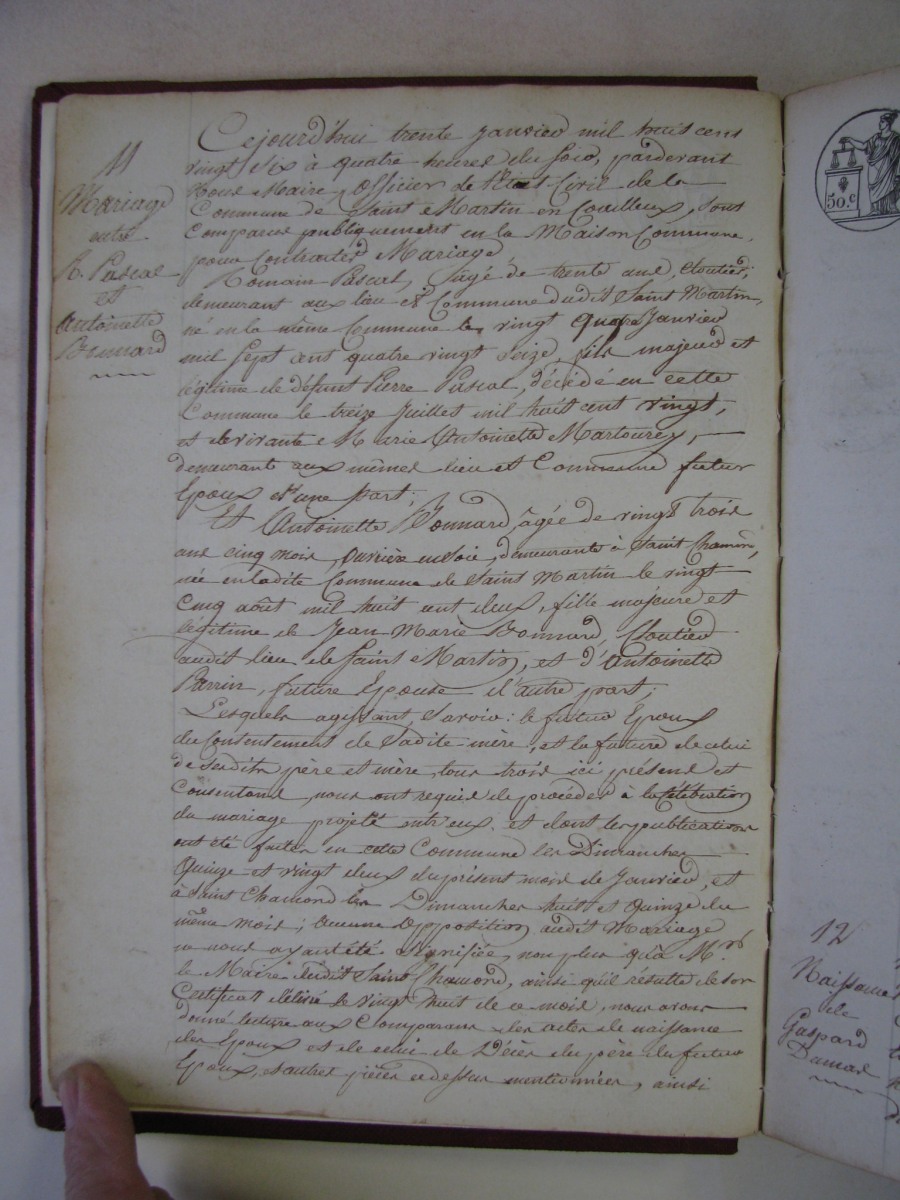 11
Mariage
entre
R. Pascal
et
Antoinette
Bonnard
Cejourd'hui trente Janvier mil huit cent
vingt Six à quatre heures du Soir, pardevant
Nous Maire, Officier de l'Etat Civil de la
Commune de Saint Martin en Coailleux, Sont
Comparus publiquement en la Maison Commune,
pour Contracter Mariage
Romain Pascal, âgé de trente ans, Cloutier,
demeurant aux lieu et Commune dudit Saint Martin,
né en la même Commune le vingt quatre Janvier
mil Sept cent quatre vingt Seize, fils majeur et
légitime de défunt Pierre Pascal, décédé en cette
Commune le treize Juillet mil huit cent vingt,
et de vivante Marie Antoinette Martourey,
demeurante aux mêmes lieu et Commune futur
Epoux d'une part;
Et Antoinette Bonnard, âgée de vingt trois
ans cinq mois, ouvrière en Soie, demeurante à Saint Chamond,
née en ladite Commune de Saint Martin le vingt
Cinq août mil huit cent deux, fille majeure et
légitime de Jean Marie Bonnard, Cloutier
audit lieu de Saint Martin, et d'Antoinette
Perrin, future Epouse d'autre part;
Lesquels agissant, Savoir: le futur Epoux
du Consentement de Sadite mère, et la future de celui
de Sesdits père et mère, tous trois ici présens et
Consentans, nous ont requis de procéder à la Célébration
du mariage projeté entr'eux. et dont les publications
ont été faites en cette Commune les Dimanches
Quinze et vingt deux du présent mois de Janvier, et
à Saint Chamond les Dimanches huit et Quinze du
même mois; aucune Opposition audit Mariage
ne nous ayant été Signifiée, non plus qu'à Mr.
le Maire dudit Saint Chamond, ainsi qu'il résulte de Son
Certificat délivré le vingt huit de ce mois, nous avons
donné lecture aux Comparans des actes de naissance
des Epoux et de celui de Décès du père du futur
Epoux, et autres pièces cidessus mentionnées, ainsi
50.c
12
Naissance
de
Gaspard
Dumas